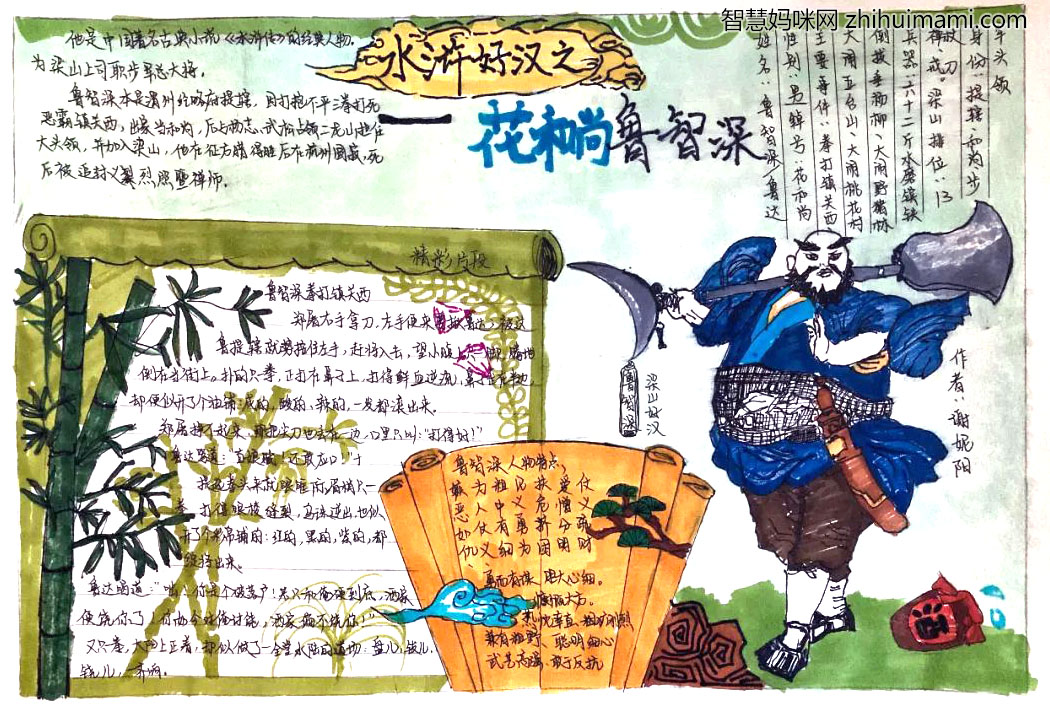 智慧妈咪网 zhihuimami.com
水浒好汉之
一花和尚鲁智深
他是中国著名古典小说《水浒传》的经典人物。
为梁山上司职步军总大将。
鲁智深本是渭州经略府提辖，因打抱不平三拳打死
恶霸镇关西，出家当和尚，后与杨志、武松占领二龙山担任
大头领，并加入梁山，他在征方腊得胜后在杭州圆寂，死
后被追封义烈照暨禅师。
姓名：鲁智深/鲁达
性别：男 绰号：花和尚
主要事件：拳打镇关西
大闹五台山、大闹桃花村
倒拔垂杨柳、大闹野猪林
兵器：六十二斤水磨镔铁
禅杖、戒刀 梁山排位：13
身份：提辖、和尚、步
军头领
精彩片段
鲁智深拳打镇关西
郑屠右手拿刀，左手便来
鲁提辖就势按住左手，赶将入去，望小腹上只一脚，腾地
倒在当街上。扑的只拳，正打在鼻子上，打得鲜血迸流，鼻子
却便似开了个油铺：咸的、酸的、辣的，一发都滚出来。
郑屠挣不起来，那把尖刀也丢在一边，口里只叫：“打得好！”
鲁达骂道：“直娘贼！还敢应口！”
提起拳头来就眼眶际眉梢只一
拳，打得眼棱缝裂，乌珠迸出，也似
开了个彩帛铺的：红的、黑的、紫的，都
绽将出来。
鲁达喝道：“咄！你是个破落户！若只和俺硬到底，洒家
便饶你了！
又只拳，太阳上正着，却似做了一全堂水陆的道场：磬儿、钹儿、
铙儿，一齐响。
鲁智深人物特点：
嫉为粗见扶爱仗
恶人中义危憎义
如仗有勇济分疏
仇义细为困明财
勇而有谋、胆大心细。
慷慨大方。
粗犷刚烈
兼有粗野、聪明细心
武艺高强、敢于反抗
鲁智深
梁山好汉
作者：谢妮阳